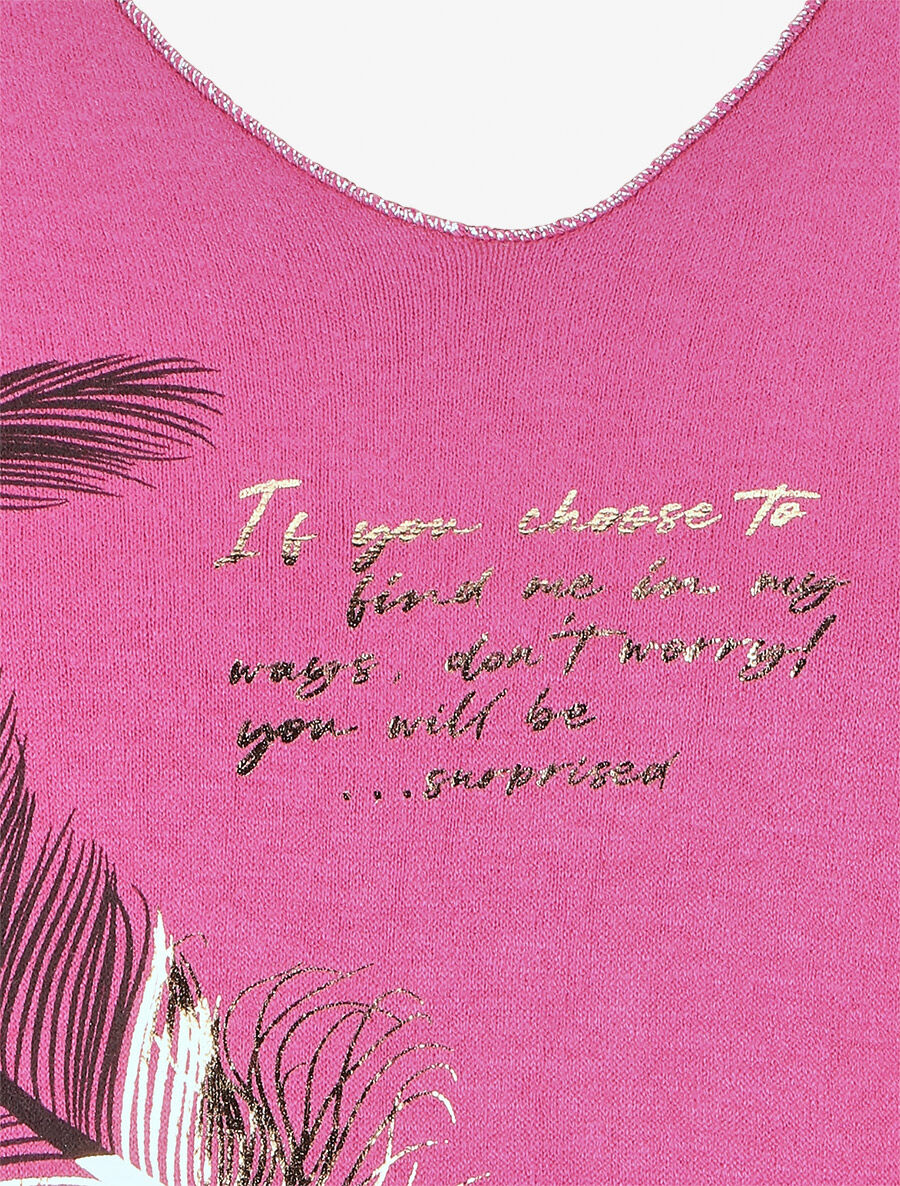 If you choose to
find me in my
ways, don't worry!
you will be
...surprised